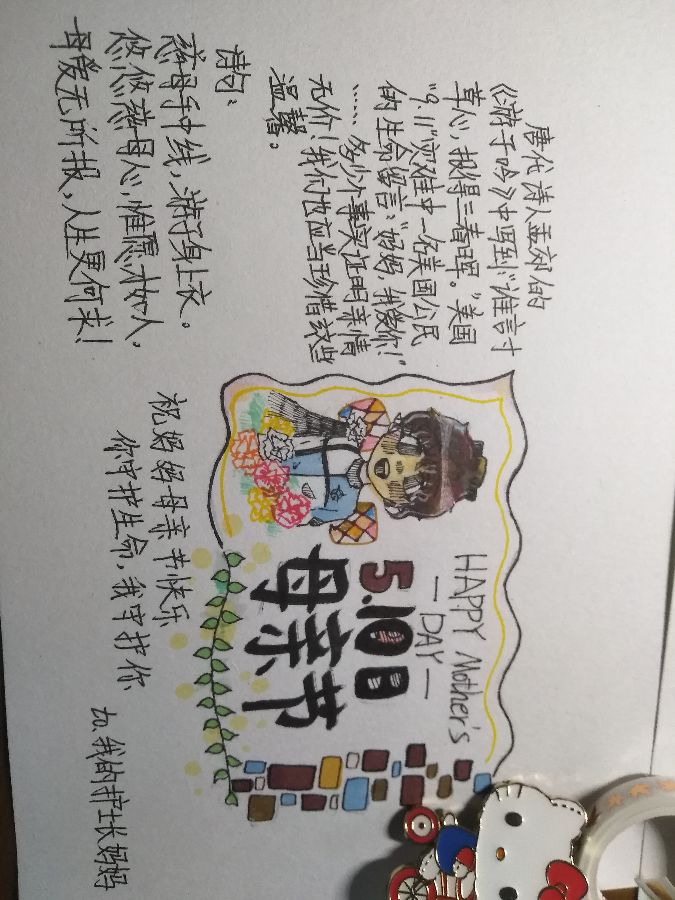 诗句：
慈母手中线，游子身上衣。
悠悠慈母心，惟愿才如人。
母爱无所报，人生更何求！
唐代诗人孟郊的
《游子吟》中写到“谁言寸
草心，报得三春晖。”美国
“9.11”灾难中一名美国公民
的生命留言：“妈妈，我爱你！”
……多少个事实证明亲情
无价！我们也应当珍惜这些
温馨。
HAPPY Mother's
— DAY —
5.10日
母亲节
祝妈妈母亲节快乐
你守护生命，我守护你
to.我的护士长妈妈